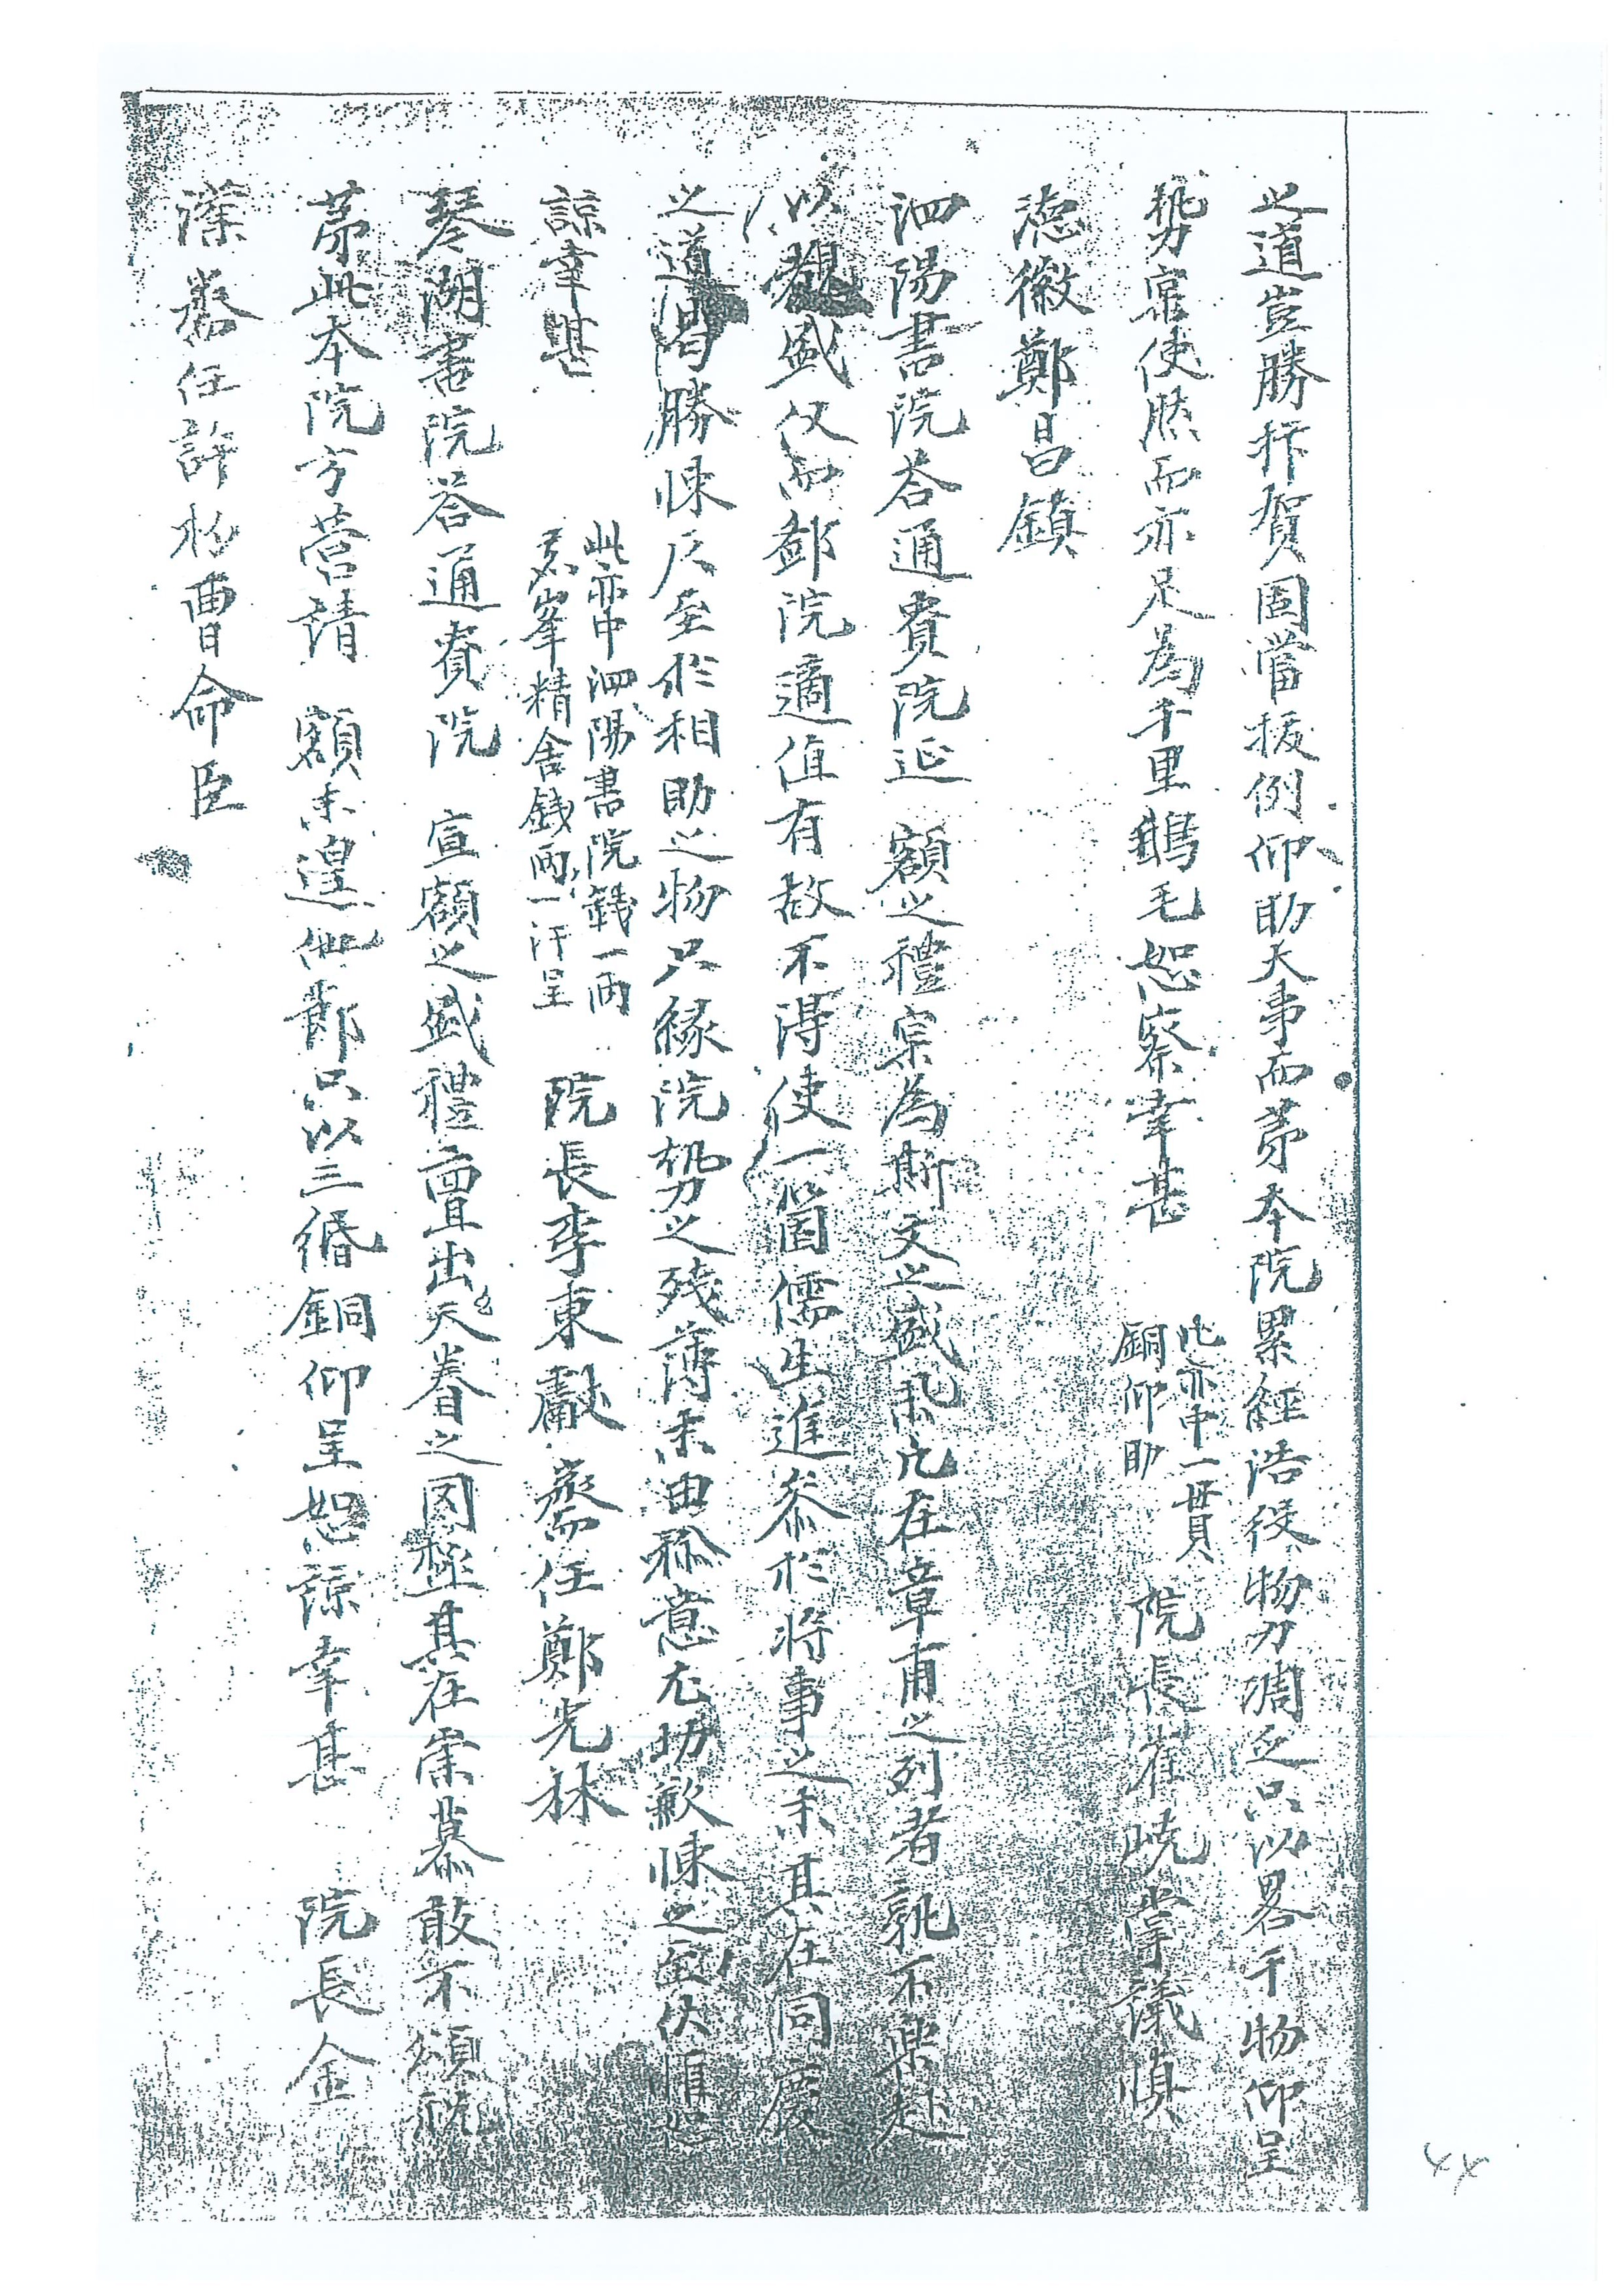 之道豈勝抃賀固當援例仰助大事而第本院累經浩役物力凋乏只以畧干物仰呈
勢第使然而亦足為千里鵝毛恕察幸甚
此亦中一貫
銅仰助
院長崔晄掌議慎
德徽鄭昌鎮
泗陽書院答通賁院延 額之禮寔為斯文之盛凡在章甫之列者孰不樂赴
以覩盛仪而鄙院適值有故不得使一箇儒生進叅於將事之末其在同慶
之道曷勝悚仄至於相助之物只緣院勢之殘薄未由稱意尤切歉悚之至伏惟恕
諒幸甚
此亦中泗陽書院錢一兩
峯精舍錢兩一汗呈
院長李東獻齋任鄭光林
琴湖書院答通賁院 宣額之盛禮亶出天眷之罔極其在崇慕敢不頌祝
第此本院方營請 額未遑他郡只以三緡銅仰呈恕諒幸甚 院長金
濼齋任許杓曹命臣
44